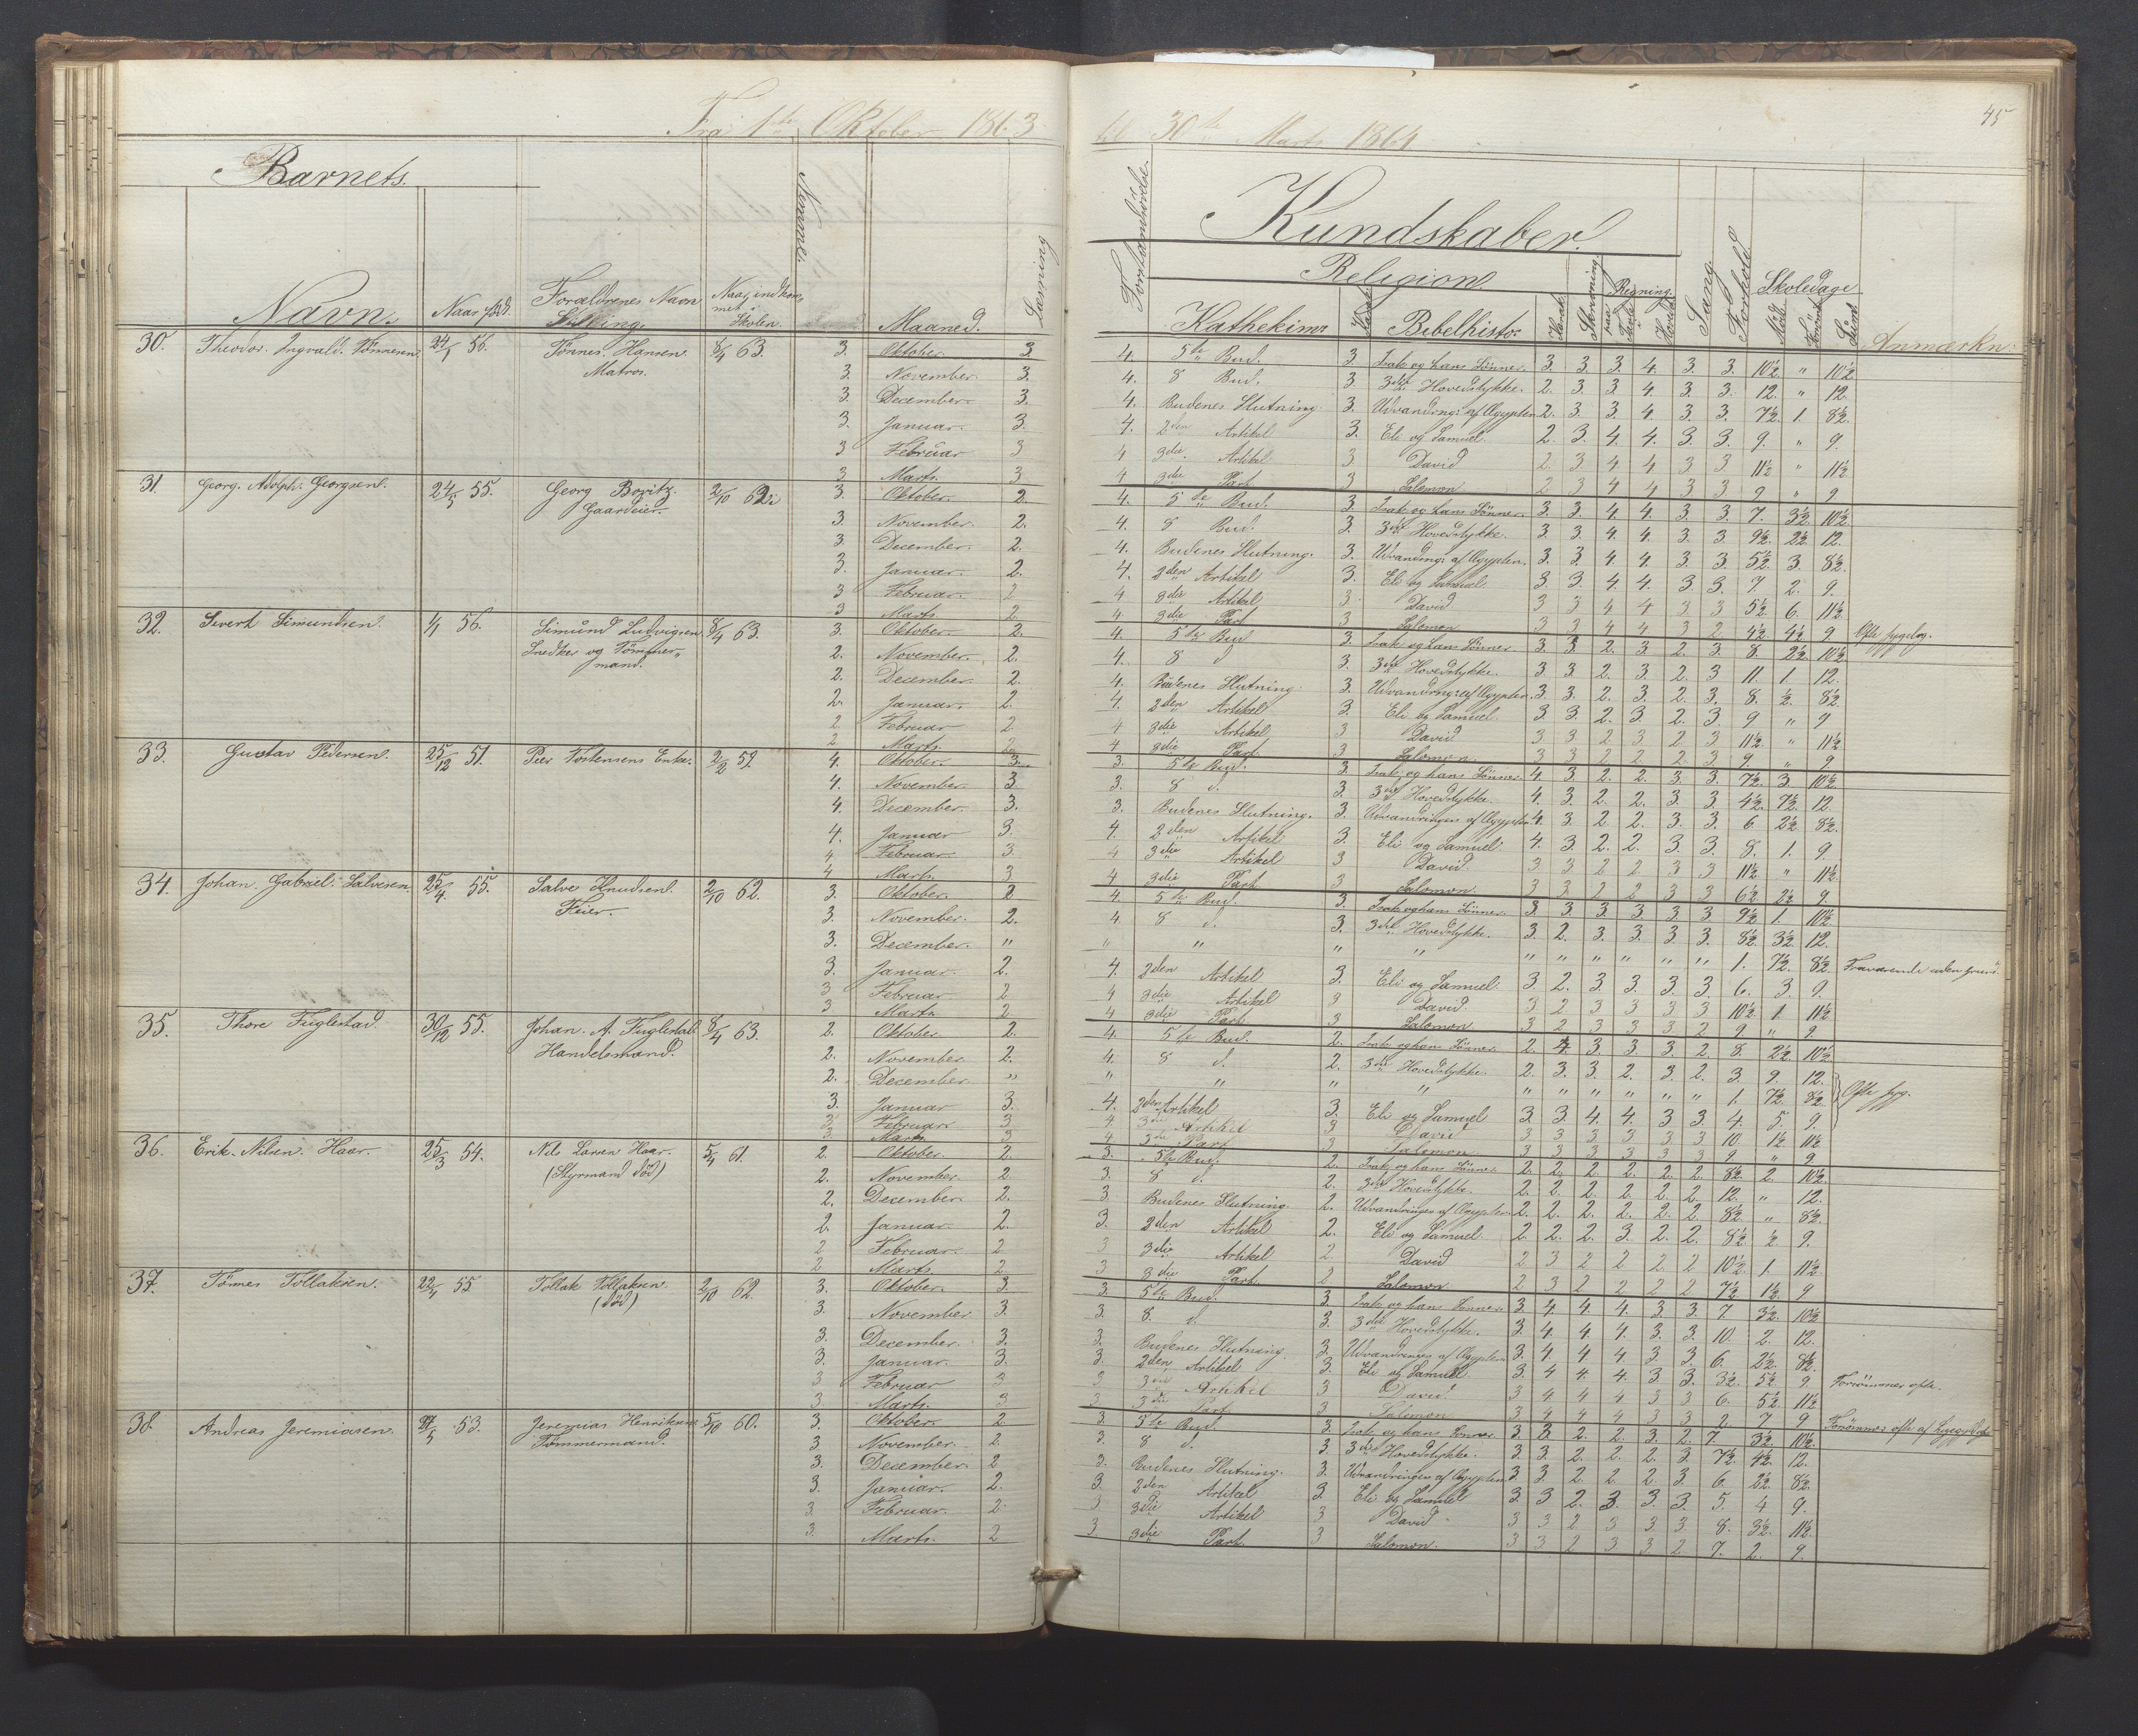 Fra 1ste Oktober 1863 til 30te Marts 1864
45
Barnets
Navn.
Naar fød.
Forældrenes Navn
Stilling.
Naar indkom-
met i
Skolen.
Nummer.
Maaned.
Læsning
Forstandsøvelse.
Kundskaber.
Religion
Kathekism:
Karak:
Bibelhistor:
Karak:
Skrivning.
Regning.
paa Tavle
Hovedr.
Sang.
Forhold.
Skoledage
Mødt.
Forsømt
Sum
Anmærkn:
30. Theodor. Ingvald. Tønnesen. 24/1 56. Tønnes. Hansen. 8/4 63. 3. Oktober. 3. 4. 5te Bud. 3. Isak og hans Sønner. 3. 3. 3. 4. 3. 3. 10½ " 10½
Matros. 3. November. 3. 4. 8 Bud. 3 3die Hovedstykke. 2. 3 3 4 3 3. 12. " 12.
3. December. 3. 4. Budenes Slutning. 3. Udvandrng: af Ægypten 2. 3. 3. 4 3. 3. 7½ 1. 8½.
3. Januar. 3. 4. 2den Artikel 3. Eli og Samuel. 2. 3. 4. 4. 3. 3. 9. " 9.
3 Februar 3 4 3die Artikel 3 David 2. 3 4 4 3 3 11½ " 11½
3 Marts. 3 4 3die Part 3 Salomon 2 3 4 4 3 3 9 " 9
31. Georg. Adolph. Georgsen. 24/5 55. Georg Bovitz. 2/10 62. 3. Oktober. 2. 4. 5te Bud. 3. Isak og hans Sønner. 3. 3. 4. 4. 3. 3. 7. 3½ 10½
Gaardeier. 3. November. 2. 4. 8 Bud. 3. 3die Hovedstykke. 3. 3. 4. 4. 3. 3 9½ 2½ 12.
3. December. 2. 4. Budenes Slutning. 3. Udvandrng: af Ægypten. 3. 3. 4 4. 3. 3. 5½. 3. 8½.
3. Januar. 2. 4. 2den Artikel 3. Eli og Samuel. 3. 3. 4. 4. 3 3. 7. 2. 9.
3 Februar. 2 4 3die Artikel 3 David 3 3 4 4 3 3 5½ 6. 11½
3 Marts. 2. 4 3die Part 3 Salomon 3 3 4 4 3 2. 4½ 4½ 9. Ofte sygelig.
32. Sivert Simundsen. 1/1 56. Simund Ludvigsen. 8/4 63. 3. Oktober. 2. 4. 5te Bud 3. Isak og hans Sønner. 3. 3. 2. 3. 2. 3. 8. 2½ 10½
Snedker og Tømmer- 2. November. 2. 4. 8 d 3. 3die Hovedstykke. 3. 3. 2. 3. 2. 3 11. 1. 12.
mand. 2. December. 2. 4. Budenes Slutning. 3. Udvandrng: af Ægypten. 3. 3. 2. 3. 2. 3. 8. ½. 8½.
2. Januar. 2. 4. 2den Artikel 3. Eli og Samuel. 3. 3. 2. 3. 2. 3. 9 " 9
2 Februar 2 4 3die Artikel 3 David 3 3 2 3 2. 3 11½ " 11½
2. Marts. 2 4 3die Part. 3 Salomon 3 3 2 2 2. 3 9. " 9.
33. Gustav Pedersen. 25/12 51. Peer Tostensens Enke. 2/2 59. 4. Oktober. 3. 3. 5te Bud. 3. Isak og hans Sønner. 4. 3. 2. 2. 3. 3. 7½ 3. 10½
4. November. 3 3. 8 d. 3. 3die Hovedstykke. 4. 3. 2. 2. 3. 3. 4½ 7½ 12.
4. December. 3. 3. Budenes Slutning. 3. Udvandringen af Ægypten. 4. 3 2. 2. 3. 3. 6 2½ 8½.
4. Januar 3. 4. 2den Artikel 3. Eli og Samuel. 4. 3 2. 2. 3. 3. 8. 1. 9.
4 Februar 3 4 3die Artikel 3 David. 3 3 2 2 3 3 11½ " 11½
4 Marts. 3 4 3die Part. 3 Salomon. 3 3 2 2 3 3 6½ 2½ 9.
34. Johan. Gabriel. Salvesen. 25/4 55. Salve Knudsen. 2/10 62. 3. Oktober. 2 4. 5te Bud. 3. Isak og hans Sønner. 3. 3. 3. 3. 3. 3 9½ 1. 10½
Feier. 3. November. 2. 4. 8 d. 3. 3die Hovedstykke. 3. 2. 3. 3. 3. 3. 8½ 3½ 12.
3. December. " " " " " " " " " " " 1. 7½. 8½ Fraværende uden grund.
3. Januar. 2. 4. 2den Artikel 3. Eli og Samuel 3. 2. 3. 3. 3. 3. 6. 3. 9.
3 Februar. 2 4 3die Artikel 3 David. 3 2 3 3 3 3 10½ 1. 11½
3 Marts 2 4 3die Part 3 Salomon 3 2 3 3 3 2 9 " 9.
35. Thore Fuglestad. 30/12 55. Johan. A. Fuglestad. 8/4 63. 2. Oktober 2. 4. 5te Bud. 2. Isak og hans Sønner 2. 4. 3. 3. 3. 2. 8. 2½ 10½
Handelsmand. 2. November. 2. 4. 8 d. 2. 3die Hovedstykke. 2. 3. 3. 2. 3. 2. 3. 9. 12.
2. December " " " " " " " " " " " 1. 7½ 8½ Ofte syg.
3. Januar 3. 4. 2den Artikel 3. Eli og Samuel 3. 3. 4. 4. 3 3. 4. 5. 9.
3 Februar 3 4. 3die Artikel 3 David 3 3 3 3 3 3 10 1½ 11½
3. Marts. 3 4 3die Part 3 Salomon 3 3 3 3 3 3 9. " 9
36. Erik. Nilsen. Haar. 25/3 54. Nils Larsen Haar. 5/4 61. 2. Oktober. 2. 3. 5te Bud. 2. Isak og hans Sønner. 2. 2. 2. 2. 2. 2. 8½ 2. 10½
(Styrmand død) 2. November. 2. 3. 8 d. 2. 3die Hovedstykke. 2. 2. 2. 2. 2. 2. 12. " 12.
2. December. 2. 3. Budenes Slutning. 2. Udvandringen af Ægypten. 2. 2. 2. 2. 2. 2. 8½ " 8½.
2. Januar. 2. 3. 2den Artikel 2. Eli og Samuel. 2. 2. 2. 3. 2. 2. 8½ ½ 9.
2 Februar. 2 3 3die Artikel 2. David 2 3 2 2 2 2 10½ 1. 11½
2 Marts 2 3 3die Part. 2 Salomon 2 3 2 2 2 2 7½ 1½ 9
37. Tønnes Tollaksen. 22/4 55. Tollak Tollaksen. 2/10 62. 3. Oktober. 3. 3. 5te Bud. 3. Isak og hans Sønner 3. 4. 4. 4. 3. 3. 7. 3½ 10½
(død) 3. November 3. 3. 8. d. 3. 3die Hovedstykke. 3. 4. 4. 4. 3. 3. 10. 2. 12.
3. December. 3. 3. Budenes Slutning. 3. Udvandringen af Ægypten 3. 4. 4 4. 3 3. 6. 2½ 8½.
3. Januar. 3. 3. 2den Artikel 3. Eli og Samuel. 3. 4 4. 4. 3. 3. 3½. 5½ 9 Forsømmer ofte.
3 Februar 3 3 3die Artikel 3 David. 3 4 4 4 3 3 6. 5½ 11½
3. Marts. 3 3 3die Part. 3 Salomon 3 4 4 4 3 3 2 7 9
38. Andreas Jeremiasen. 27/5 53. Jeremias Henriksen 5/10 60. 3. Oktober. 2 3. 5te Bud. 3. Isak og hans Sønner. 3. 3. 2. 2. 3. 2. 7. 3½ 10½. Forsømmer ofte af
Tømmermand. 3. November. 2. 3. 8 d. 3. 3die Hovedstykke. 3. 3. 2. 2. 2. 3 7½ 4½. 12.
3. December. 2 3. Budenes Slutning. 3. Udvandringen af Ægypten 3. 3. 2. 2. 2. 3 6. 2½ 8½
3. Januar. 2. 3. 2den Artikel 3. Eli og Samuel 3. 3 2. 3. 3. 3. 5. 4 9.
3. Februar. 2. 3 3die Artikel 3 David 3 3 2 3 3. 3. 8. 3½. 11½.
3. Marts. 2 3 3die Part. 3 Salomon. 3 3 2 3 3 2 7. 2. 9.